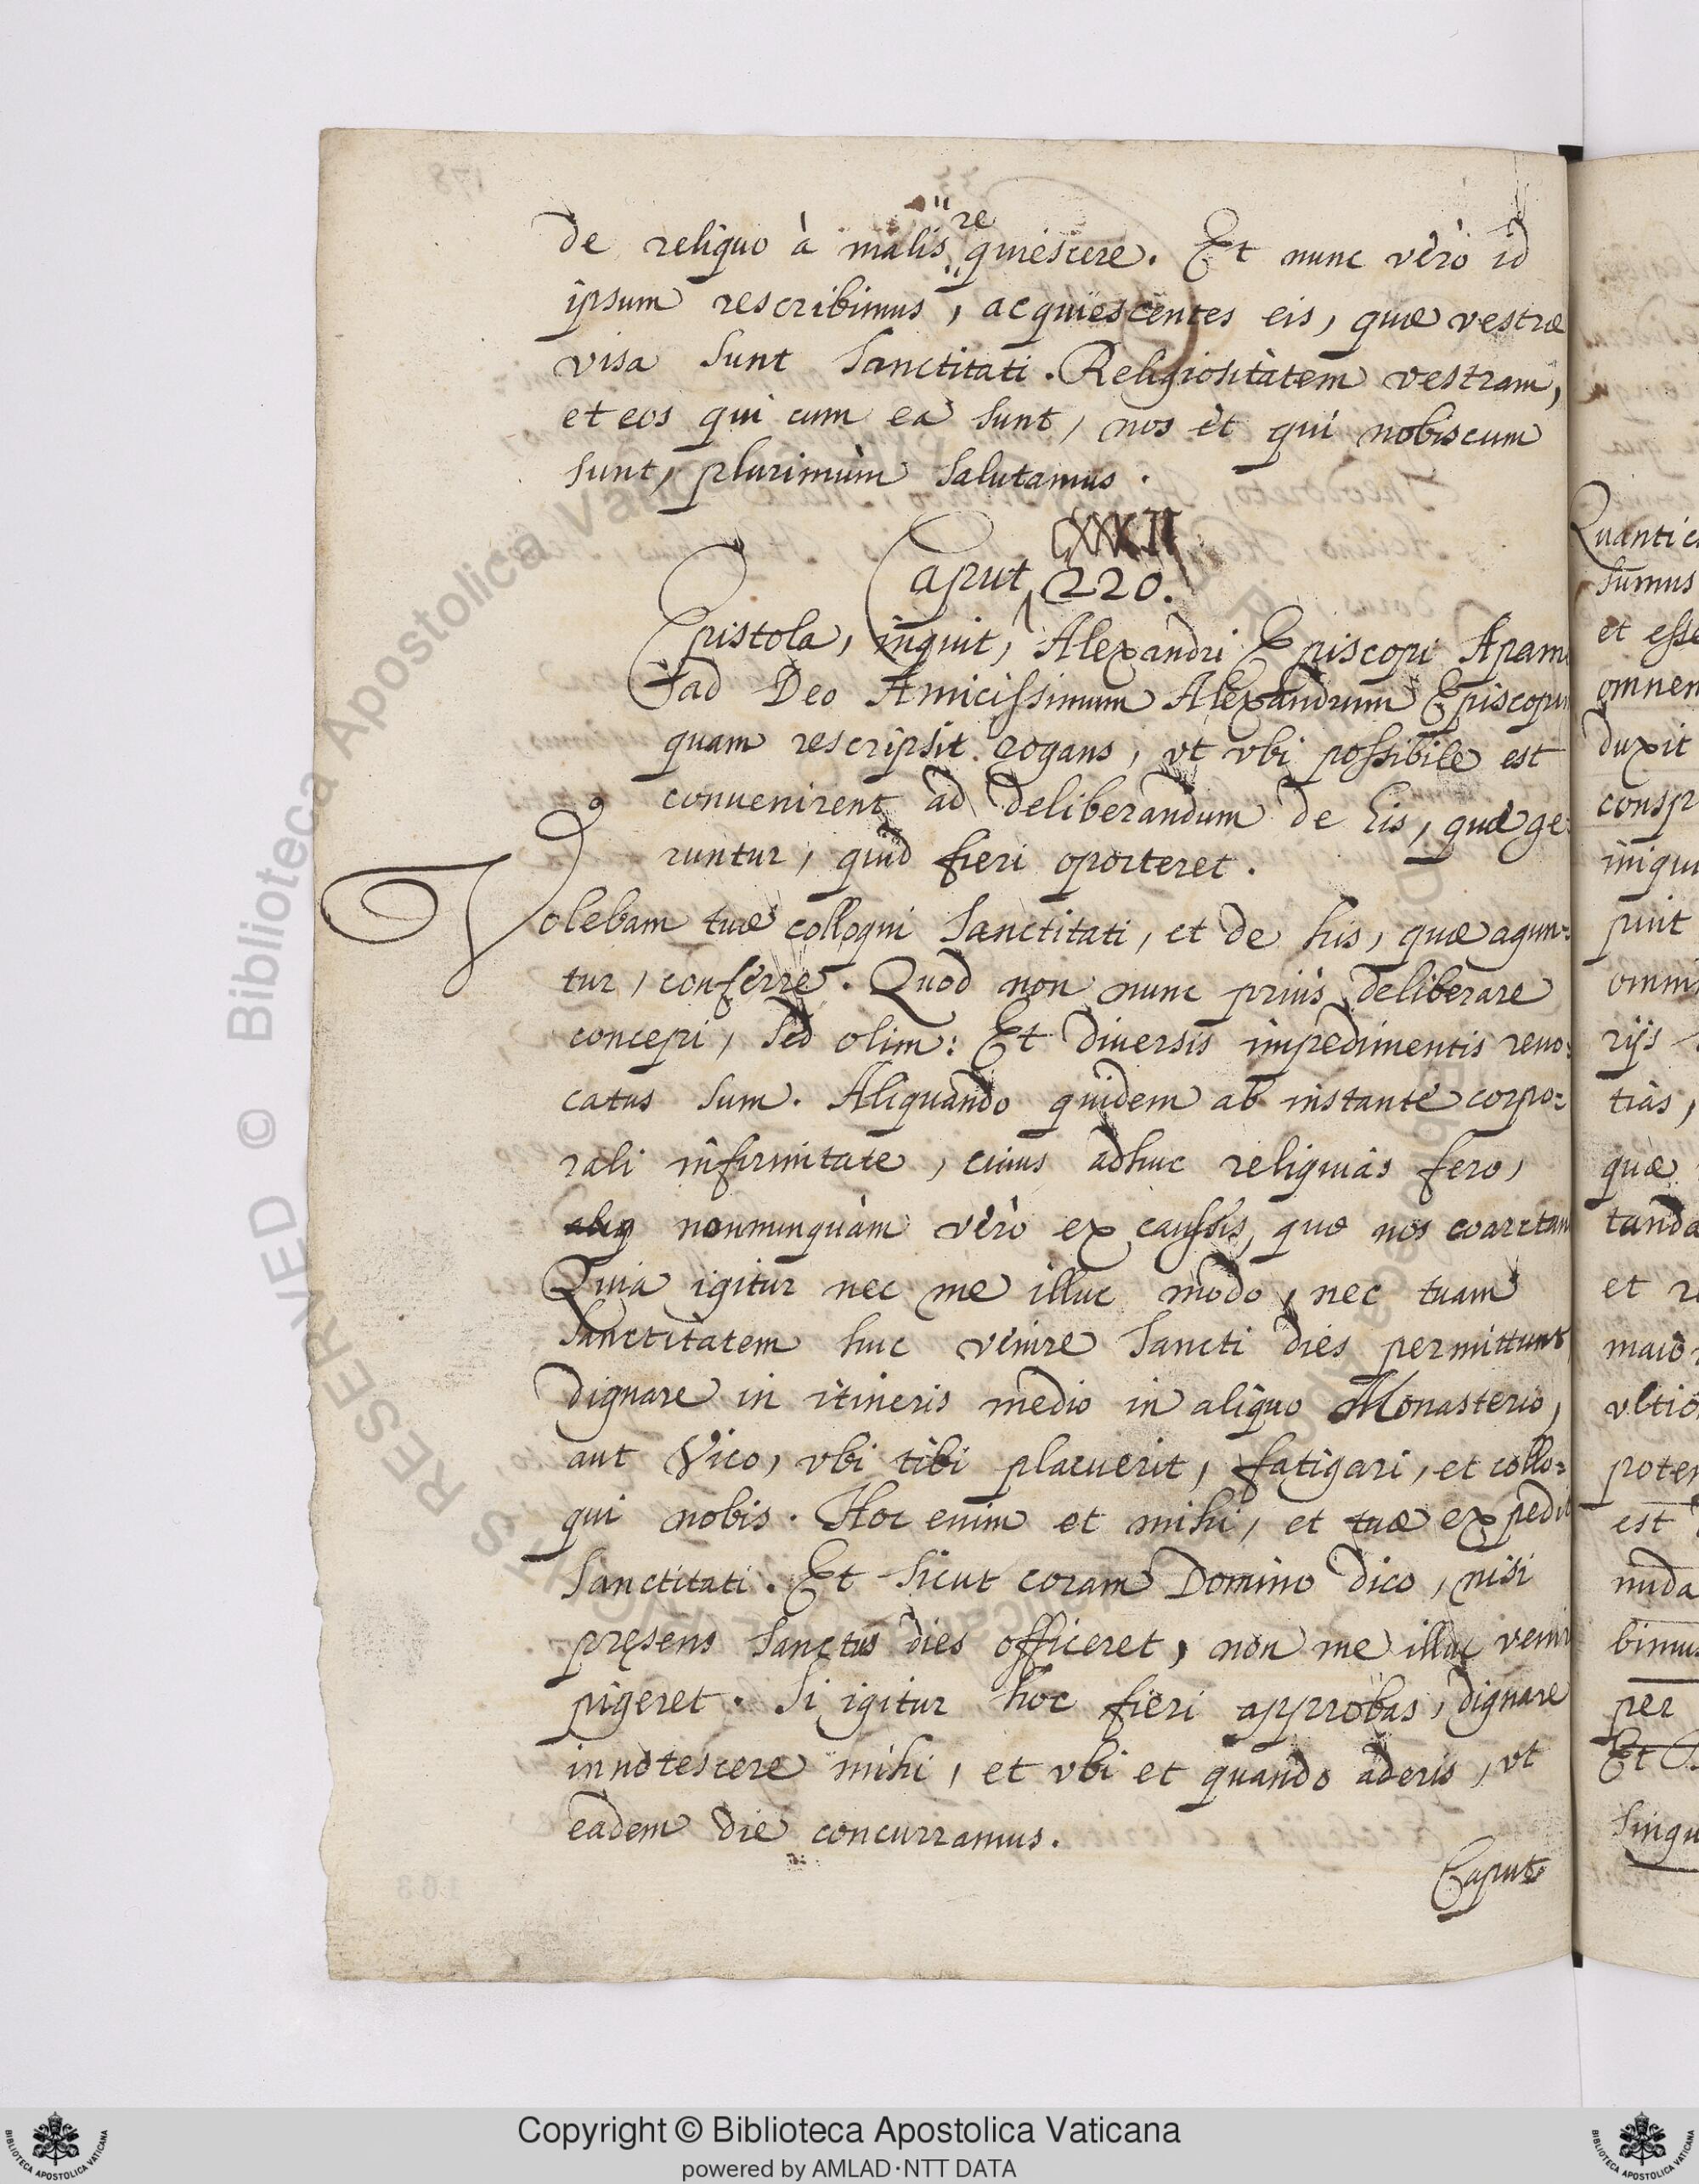 de reliquo à malis re quiescere. Et nunc verò id
ipsum rescribimus, acquiescentes eis, quæ vestræ
visa sunt Sanctitati. Religiositatem vestram,
et eos qui cum ea sunt, nos et qui nobiscum
sunt, plurimùm salutamus.
CXXXII
Caput 220.
Epistola, inquit, Alexandri Episcopi Apam
ad Deo Amicissimum Alexandrum Episcopum
quam rescripsit rogans, vt vbi possibile est
conuenirent ad deliberandum de Eis, quæ ge:
runtur, quid fieri oporteret.
Volebam tuæ colloqui Sanctitati, et de his, quæ agun:
tur, conferre. Quod non nunc priùs deliberare
concepi, sed olim: Et diuersis impedimentis reuo:
catus sum. Aliquando quidem ab instante corpo:
rali infirmitate, cuius adhuc reliquias fero,
aliq nonnunquàm verò ex caussis, quæ nos coarctan
Quia igitur nec me illuc modo, nec tuam
Sanctitatem huc venire Sancti dies permittunt,
dignare in itineris medio in aliquo Monasterio,
aut Vico, vbi tibi placuerit, fatigari, et collo:
qui nobis. Hoc enim et mihi, et tuæ expedit
Sanctitati. Et sicut coram Domino dico, nisi
pręsens Sanctus dies officeret, non me illuc venir
pigeret. Si igitur hoc fieri approbas, dignare
innotescere mihi, et vbi et quando aderis, vt
eadem die concurramus.
Caput
Quanti c
sumus
et esse
omnem
duxit
conspi
iniqui
puit
omni
rijs
tias,
quæ
tanda
et r
maio
vltio
poter
est
nuda
bimus
per
Et
singu
© Biblioteca Apostolica Vaticana
RESERVED
Copyright © Biblioteca Apostolica Vaticana
powered by AMLAD·NTT DATA
BIBLIOTECA APOSTOLICA VATICANA
BIBLIOTECA APOSTOLICA VATICANA